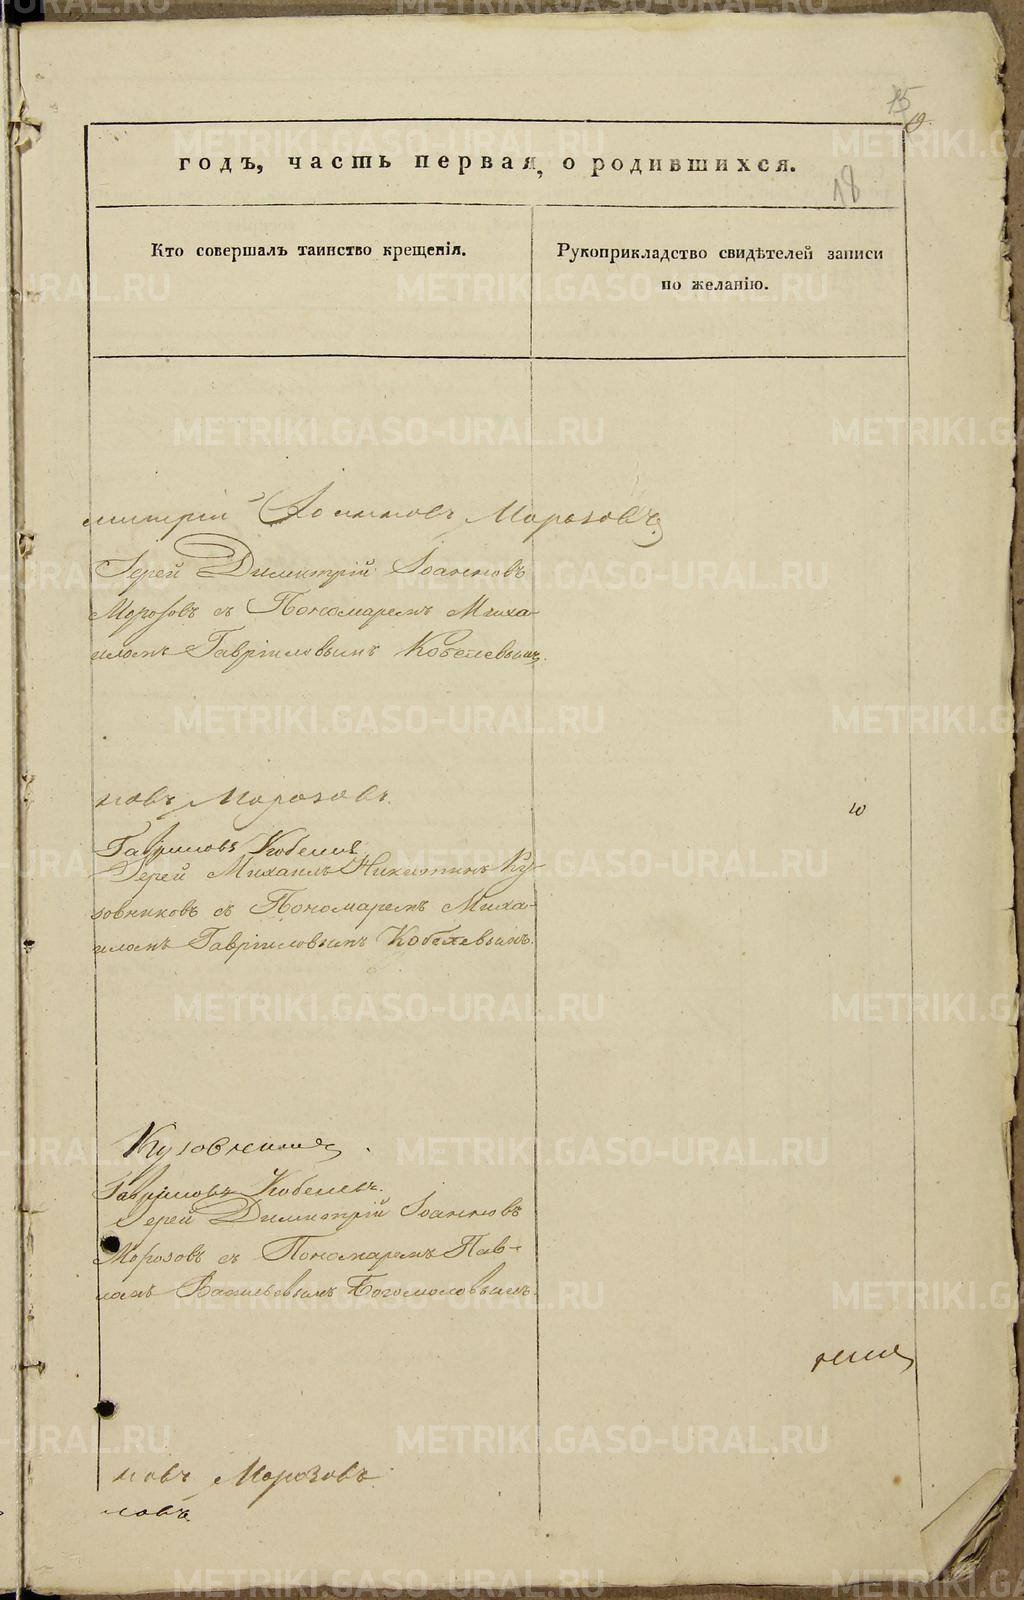 15
19.
годъ, часть первая, о родившихся.
18
Кто совершалъ таинство крещенія.
Рукоприкладство свидѣтелей записи
по желанію.
митрій Іоанновъ Морозовъ.
Іерей Димитрій Іоанновъ
Морозовъ съ Пономаремъ Миха-
иломъ Гавріиловымъ Кобелевымъ.
новъ Морозовъ.
Гавриловъ Кобелев
Іерей Михаилъ Никитинъ Ку-
зовниковъ съ Пономаремъ Миха-
иломъ Гавріиловымъ Кобелевымъ.
Кузовников.
Гавриловъ Кобелевъ.
Іерей Димитрій Іоанновъ
Морозовъ съ Пономаремъ Пав-
ломъ Васильевымъ Богомоловымъ.
новъ Морозовъ
ловъ.
METRIKI.GASO-URAL.RU